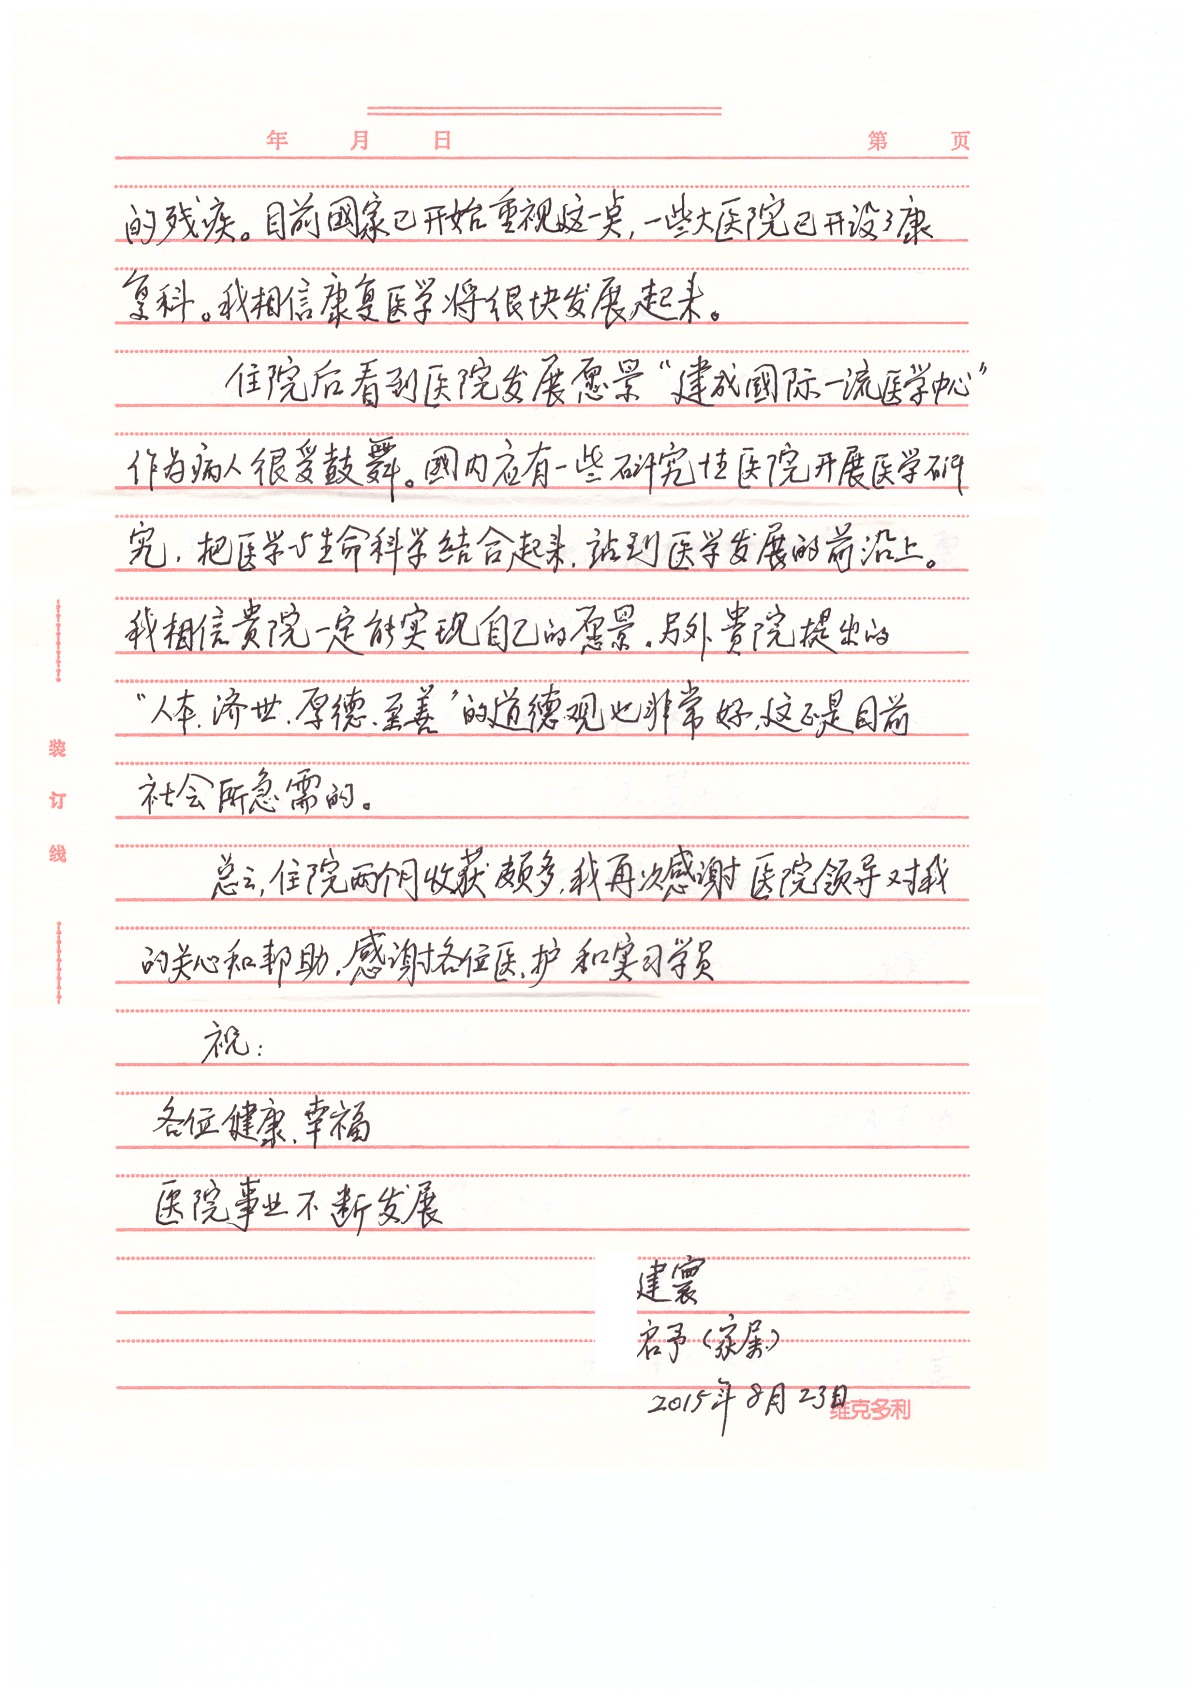 年 月 日 第 页
的残疾。目前國家已开始重视这一点，一些大医院已开设了康
复科。我相信康复医学将很快发展起来。
住院后看到医院发展愿景“建成國际一流医学中心”
作为病人很受鼓舞。國内应有一些研究性医院开展医学研
究，把医学与生命科学结合起来，站到医学发展的前沿上。
我相信貴院一定能实现自己的愿景。另外貴院提出的
“人本、济世、厚德、至善”的道德观也非常好，这正是目前
社会所急需的。
总之，住院两个月收获颇多，我再次感谢医院领导对我
的关心和帮助，感谢各位医、护和实习学员
祝：
各位健康、幸福
医院事业不断发展
建寰
启予（家属）
2015年8月23日
维克多利
装
订
线